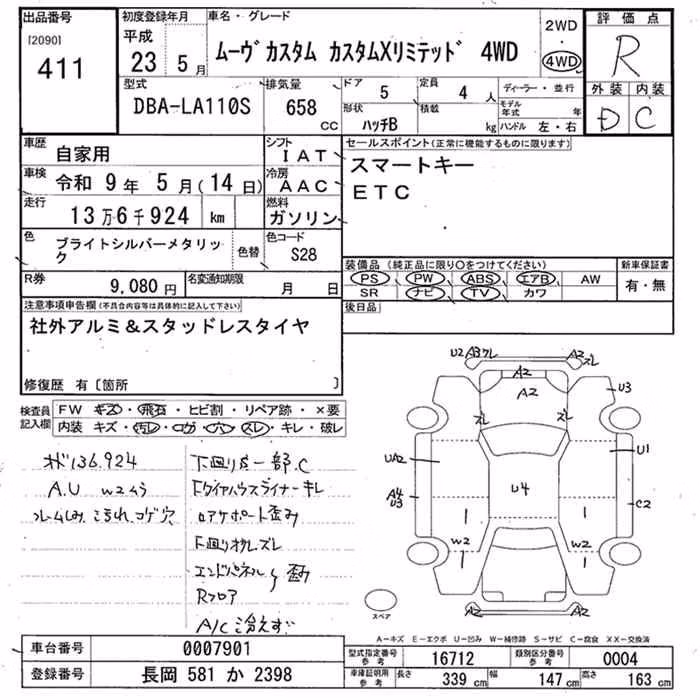 出品番号
[2090]
411
初度登録年月
平成
23 5月
車名・グレード
ムーヴ カスタム カスタムXリミテッド 4WD
2WD
4WD
評価点
R
外装 内装
D C
型式
DBA-LA110S
排気量
658 cc
ドア 5
定員 4人
形状 ハッチB
積載 kg
ディーラー・並行
モデル年式 年
ハンドル 左・右
車歴 自家用
シフト IAT
車検 令和 9年 5月(14日)
冷房 AAC
走行 13万6千924 km
燃料 ガソリン
色 ブライトシルバーメタリック
色替
色コード S28
セールスポイント(正常に機能するものに限ります)
スマートキー
ETC
R券 9,080円
名変通知期限 月 日
装備品 (純正品に限り○をつけてください)
PS PW ABS エアB AW
SR ナビ TV カワ
新車保証書
有・無
後日品
注意事項申告欄(不具合内容等は具体的に記入して下さい)
社外アルミ&スタッドレスタイヤ
修復歴 有〔箇所 〕
検査員記入欄
FW キズ・飛石・ヒビ割・リペア跡・×要
内装 キズ・汚レ・コゲ・穴・スレ・キレ・破レ
136,924
A.U W2ムラ
下廻り成一部.C
Fタイヤハウスライナーキレ
ロアサポート歪み
下廻りオクレズレ
エンドパネル 歪み
Rフロア
A/C冷えず
U2 A3ワレ
A2
ズレ
A2
A2
U3
ズレ
ズレ
UA2
U1
A4
U3
U4
C2
W2
W2
A2
A2
スペア
A-キズ E-エクボ U-凹み W-補修跡 S-サビ C-腐食 XX-交換済
車台番号 0007901
登録番号 長岡 581 か 2398
型式指定番号 参考 16712
類別区分番号 参考 0004
車庫証明用 参考
長さ 339 cm
幅 147 cm
高さ 163 cm